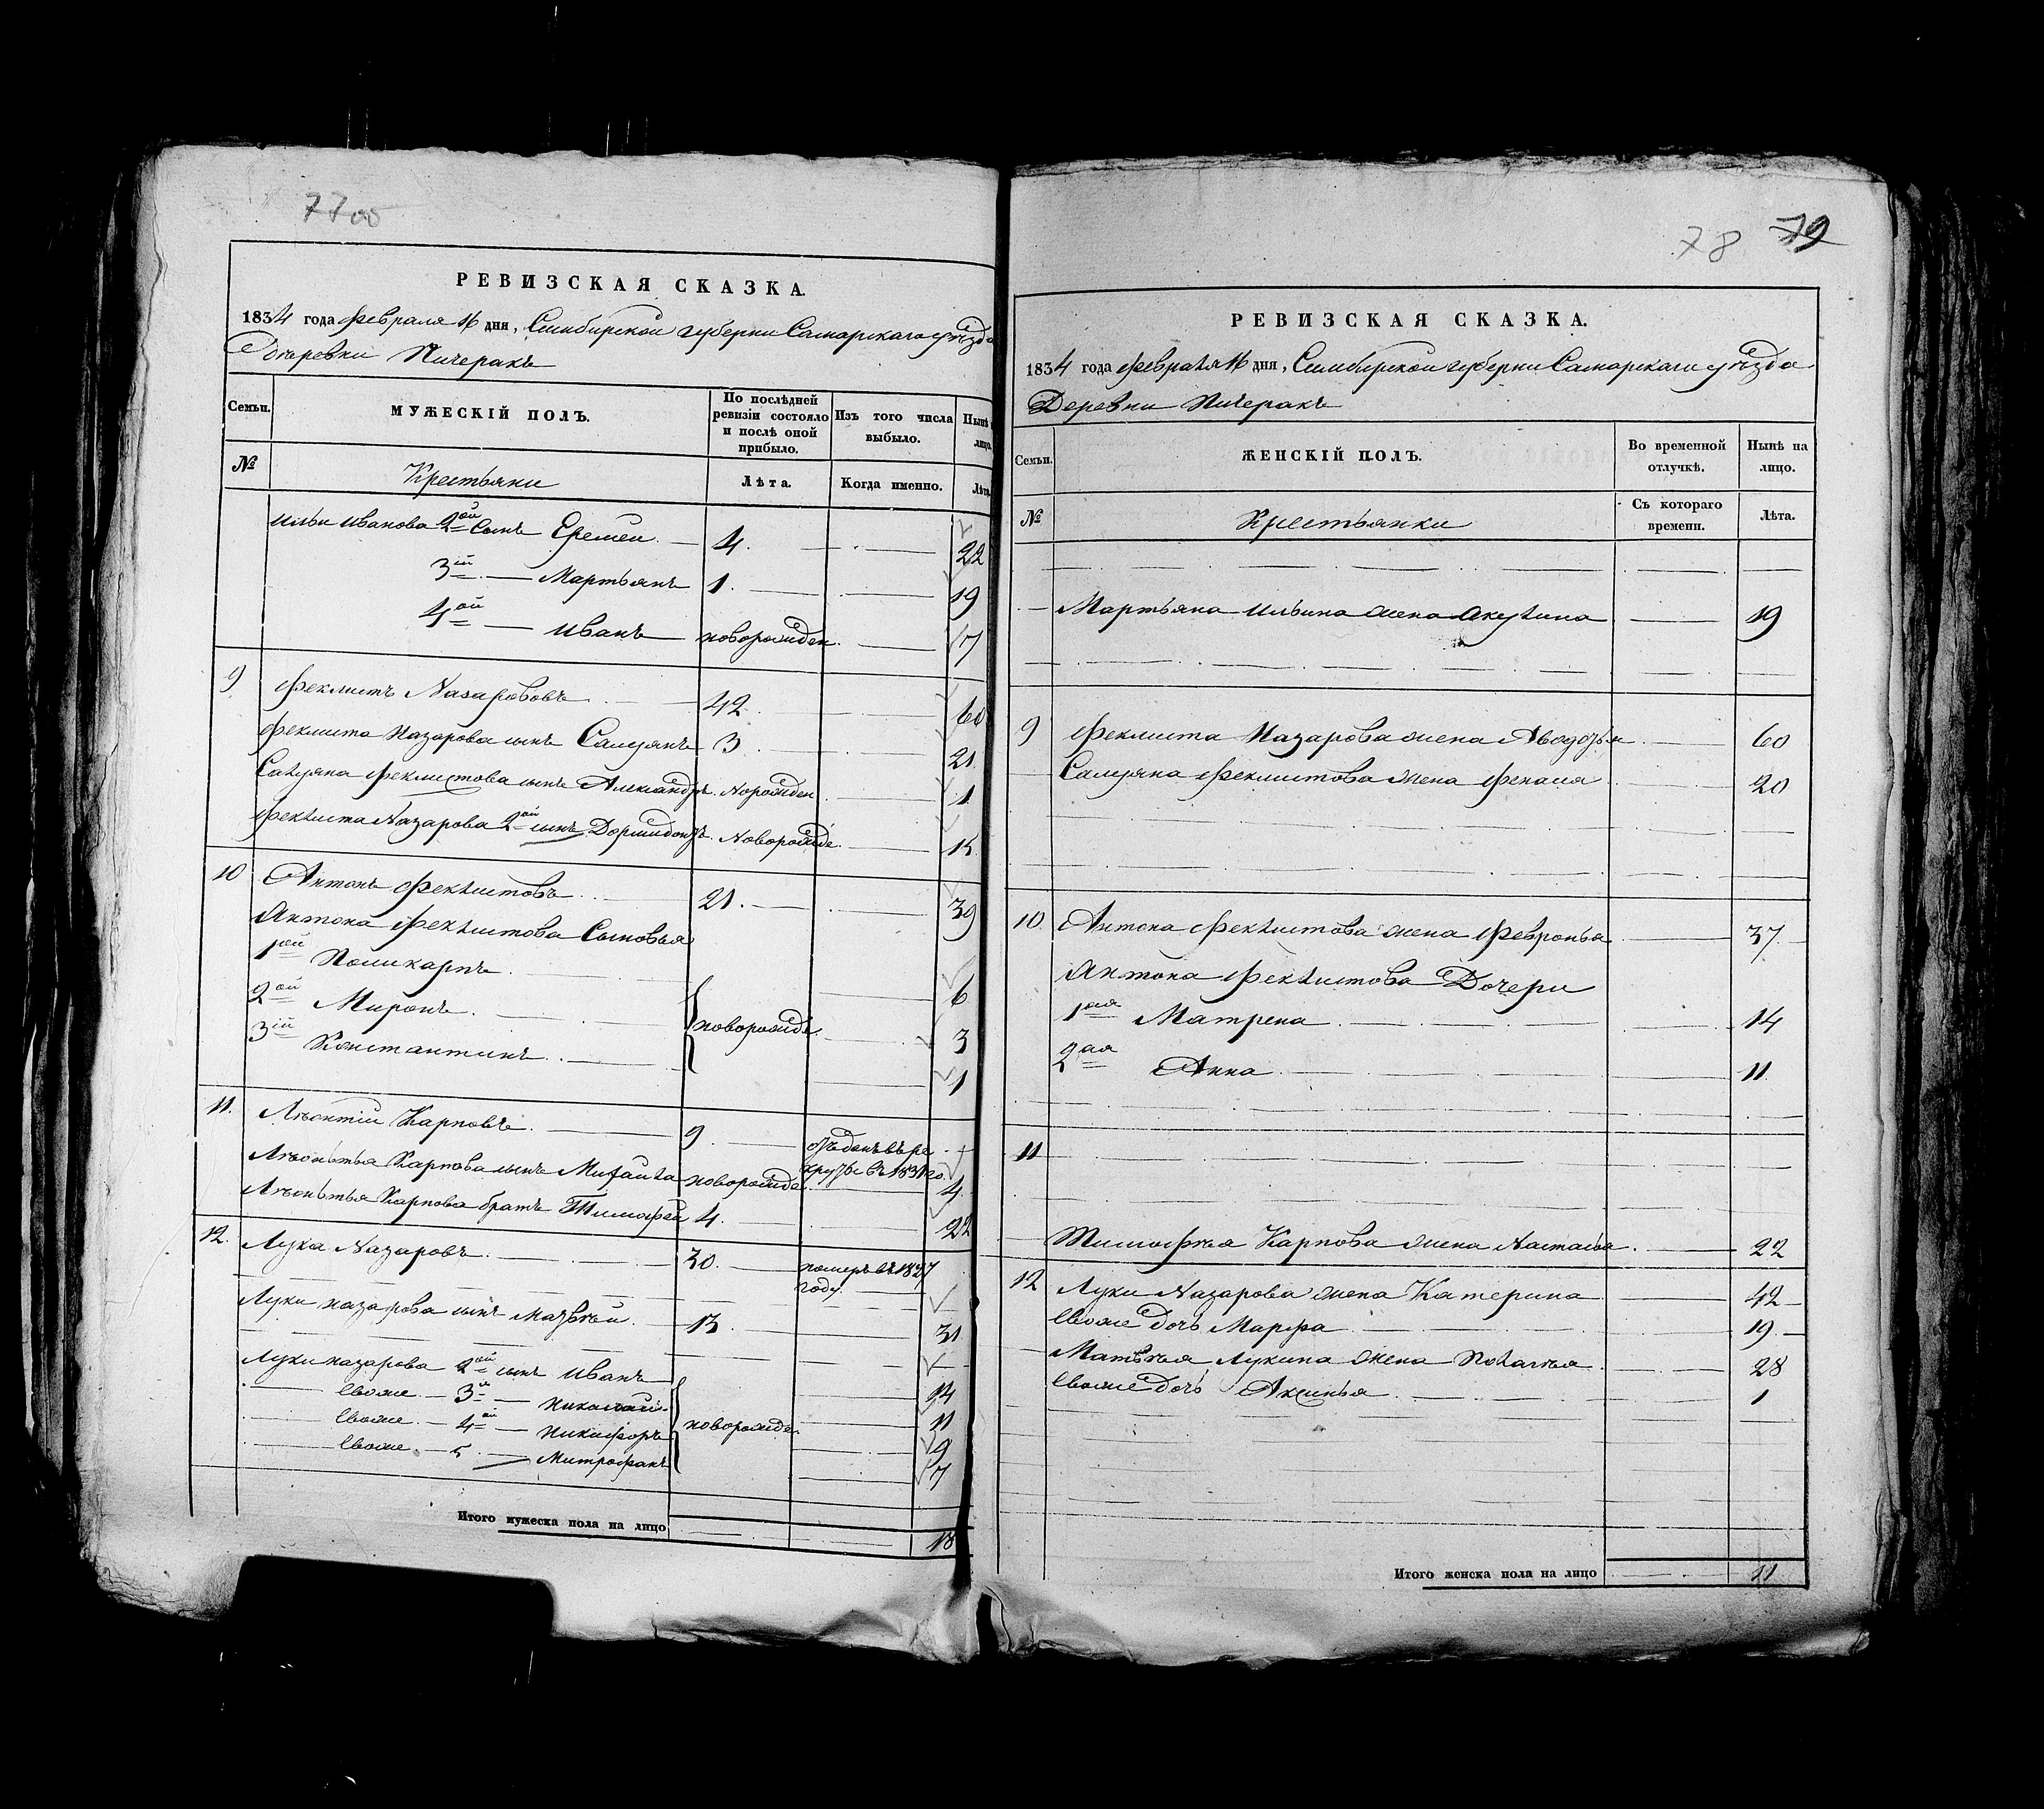 77об
РЕВИЗСКАЯ СКАЗКА.
1834 года февраля 16 дня, Симбирской губерни Самарскаго уѣзда
деревни Пичеракъ
Семьи.
МУЖЕСКІЙ ПОЛЪ.
По послѣдней ревизіи состояло и послѣ оной прибыло.
Изъ того числа выбыло.
Нынѣ
лицо.
№
Крестьяни
Лѣта.
Когда именно.
Лѣта.
Ильи Иванова 2ой сынъ Еремеи 4. 22
3ій Мартьянъ 1. 19
4ой Иванъ новорожден 17
9 Феклистъ Назаровъ 42 60
Феклиста Назарова сынъ Самуянъ 3 21
Самуяна Феклистова сынъ Александръ Норожден 1
Феклиста Назарова 2ой сынъ Дормидонъ Новорожде 15
10 Антонъ Феклистовъ 21. 39
Антона Феклистова Сыновья
1ой Поликарпъ 6
2ой Миронъ новорожде 3
3ій Константинъ 1
11. Леонтіи Карповъ 9 отъданъ въ ре
круты въ 1831 го
Леонтья Карпова сынъ Михаила новорожде 4
Леонтья Карпова братъ Тимофеи 4. 22
12. Лука Назаровъ 30. померъ въ 1827
году
Луки Назарова сынъ Матьвеи 13. 31
Луки Назарова 2ой сынъ Иванъ 14
Евоже 3й Николаи 11
Евоже 4ой Никифоръ новорожде 9
Евоже 5 Митрофанъ 7
Итого мужеска пола на лицо 18
78 79
РЕВИЗСКАЯ СКАЗКА.
1834 года февраля 16 дня, Симбирской губерни Самарскаго уѣзда
Деревни Пичеракъ
Семьи.
ЖЕНСКІЙ ПОЛЪ.
Во временной отлучкѣ.
Нынѣ на лицо.
№
Крестьянки
Съ котораго времени.
Лѣта.
Мартьяна Ильина жена Акулина 19
9 Феклиста Назарова жена Авдотья 60
Самуяна Феклистова жена 20
10 Антона Феклистова жена Февронья 37
Антона Феклистова Дочери
1ая Матрена 14
2ая Анна 11
11
Тимофея Карпова жена Настасья 22
12 Луки Назарова жена Катерина 42
Евоже дочь Марфа 19
Матьвея Лукина жена Пелагея 28
Евоже дочь Аксинья 1
Итого женска пола на лицо 11